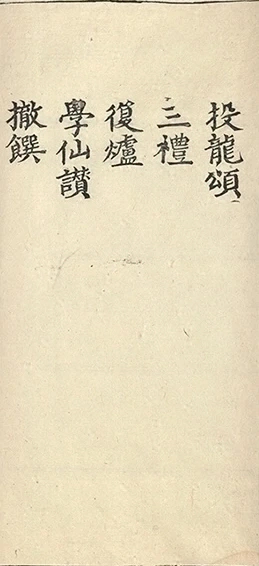 投龍頌
三禮
復爐
學仙讃
撤饌